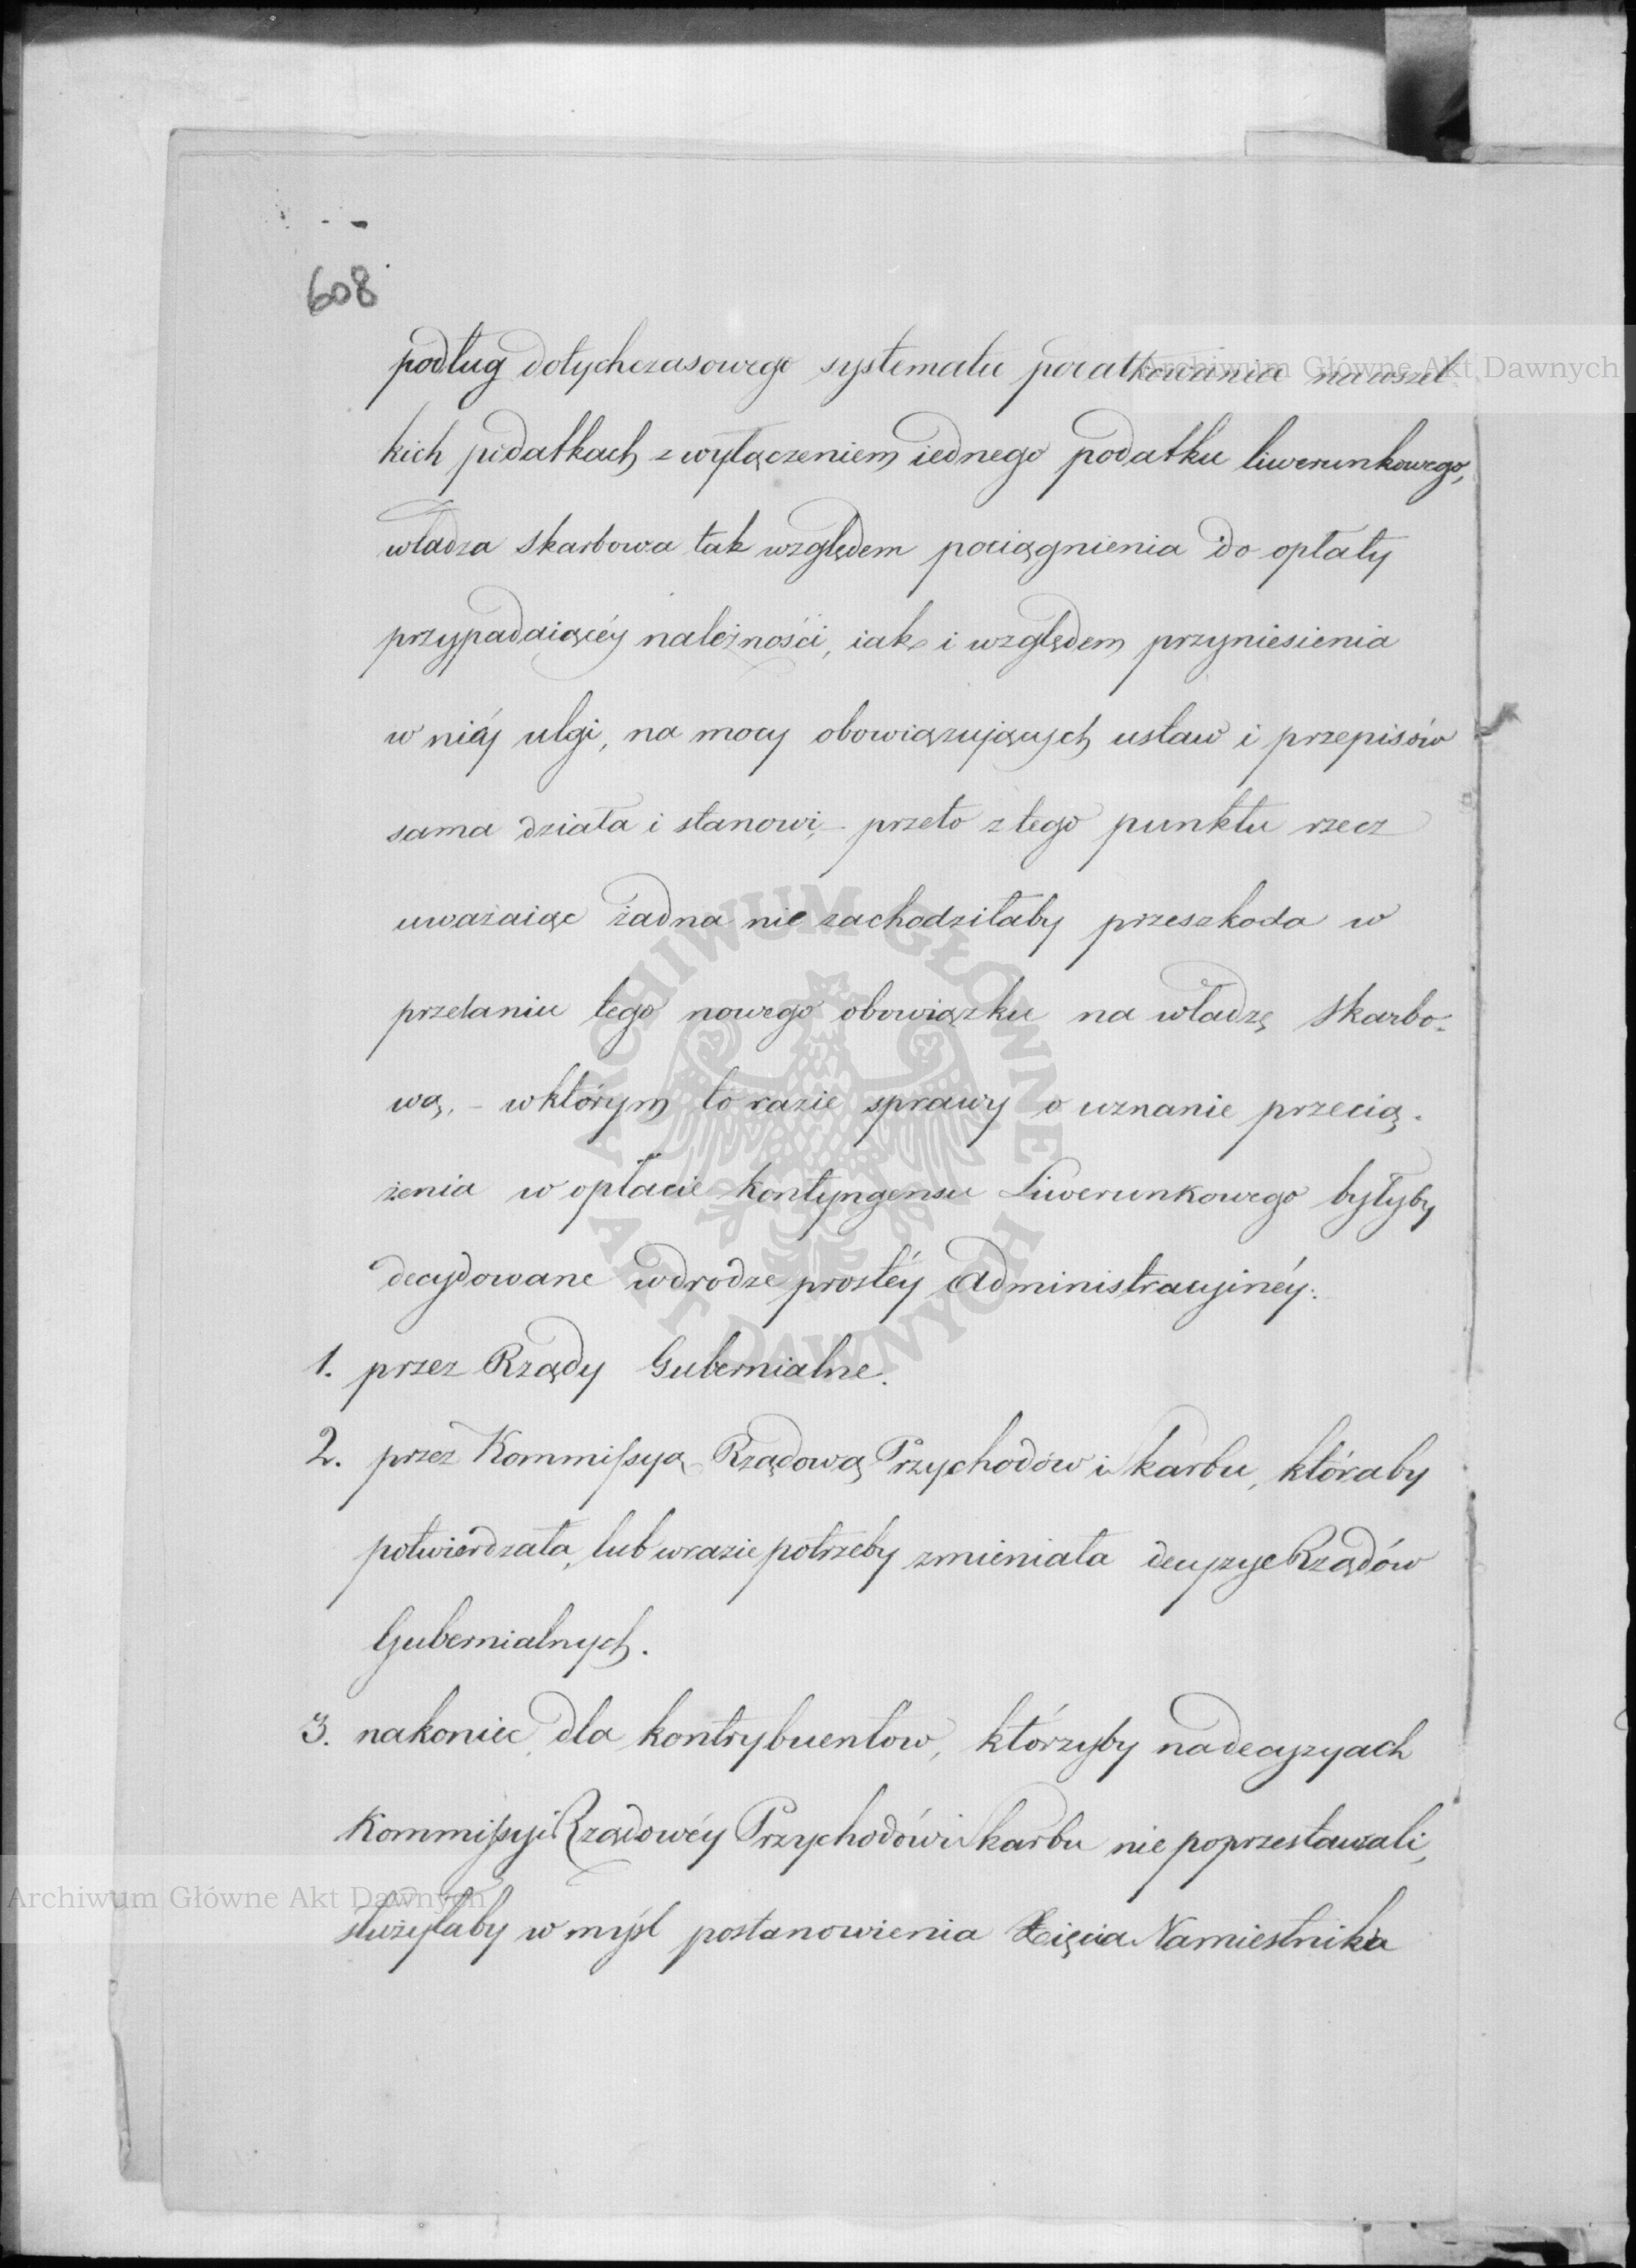 608
podług dotychczasowego systematu podatkowania na wszel
kich podatkach z wyłączeniem iednego podatku liwerunkowego,
władza skarbowa tak względem pociągnienia do opłaty
przypadaiącéy należności, iak i względem przyniesienia
w niéy ulgi, na mocy obowiązujących ustaw i przepisów
sama działa i stanowi, – przeto z tego punktu rzecz
uważaiąc żadna nie zachodziłaby przeszkoda w
przelaniu tego nowego obowiązku na władzę skarbo-
wą, – w którym to razie sprawy o uznanie przecią-
żenia w opłacie kontyngensu Liwerunkowego byłyby
decydowane w drodze prostéy Administracyinéy:
1. przez Rządy Gubernialne.
2. przez Kommissyą Rządową Przychodów i Skarbu, któraby
potwierdzała, lub w razie potrzeby zmieniała decyzye Rządów
Gubernialnych.
3. nakoniec dla kontrybuentow, którzyby na decyzyach
Kommissyi Rządowéy Przychodów i Skarbu nie poprzestawali,
służyłaby w myśl postanowienia Xięcia Namiestnika
Archiwum Główne Akt Dawnych
ARCHIWUM GŁÓWNE
AKT DAWNYCH
Archiwum Główne Akt Dawnych